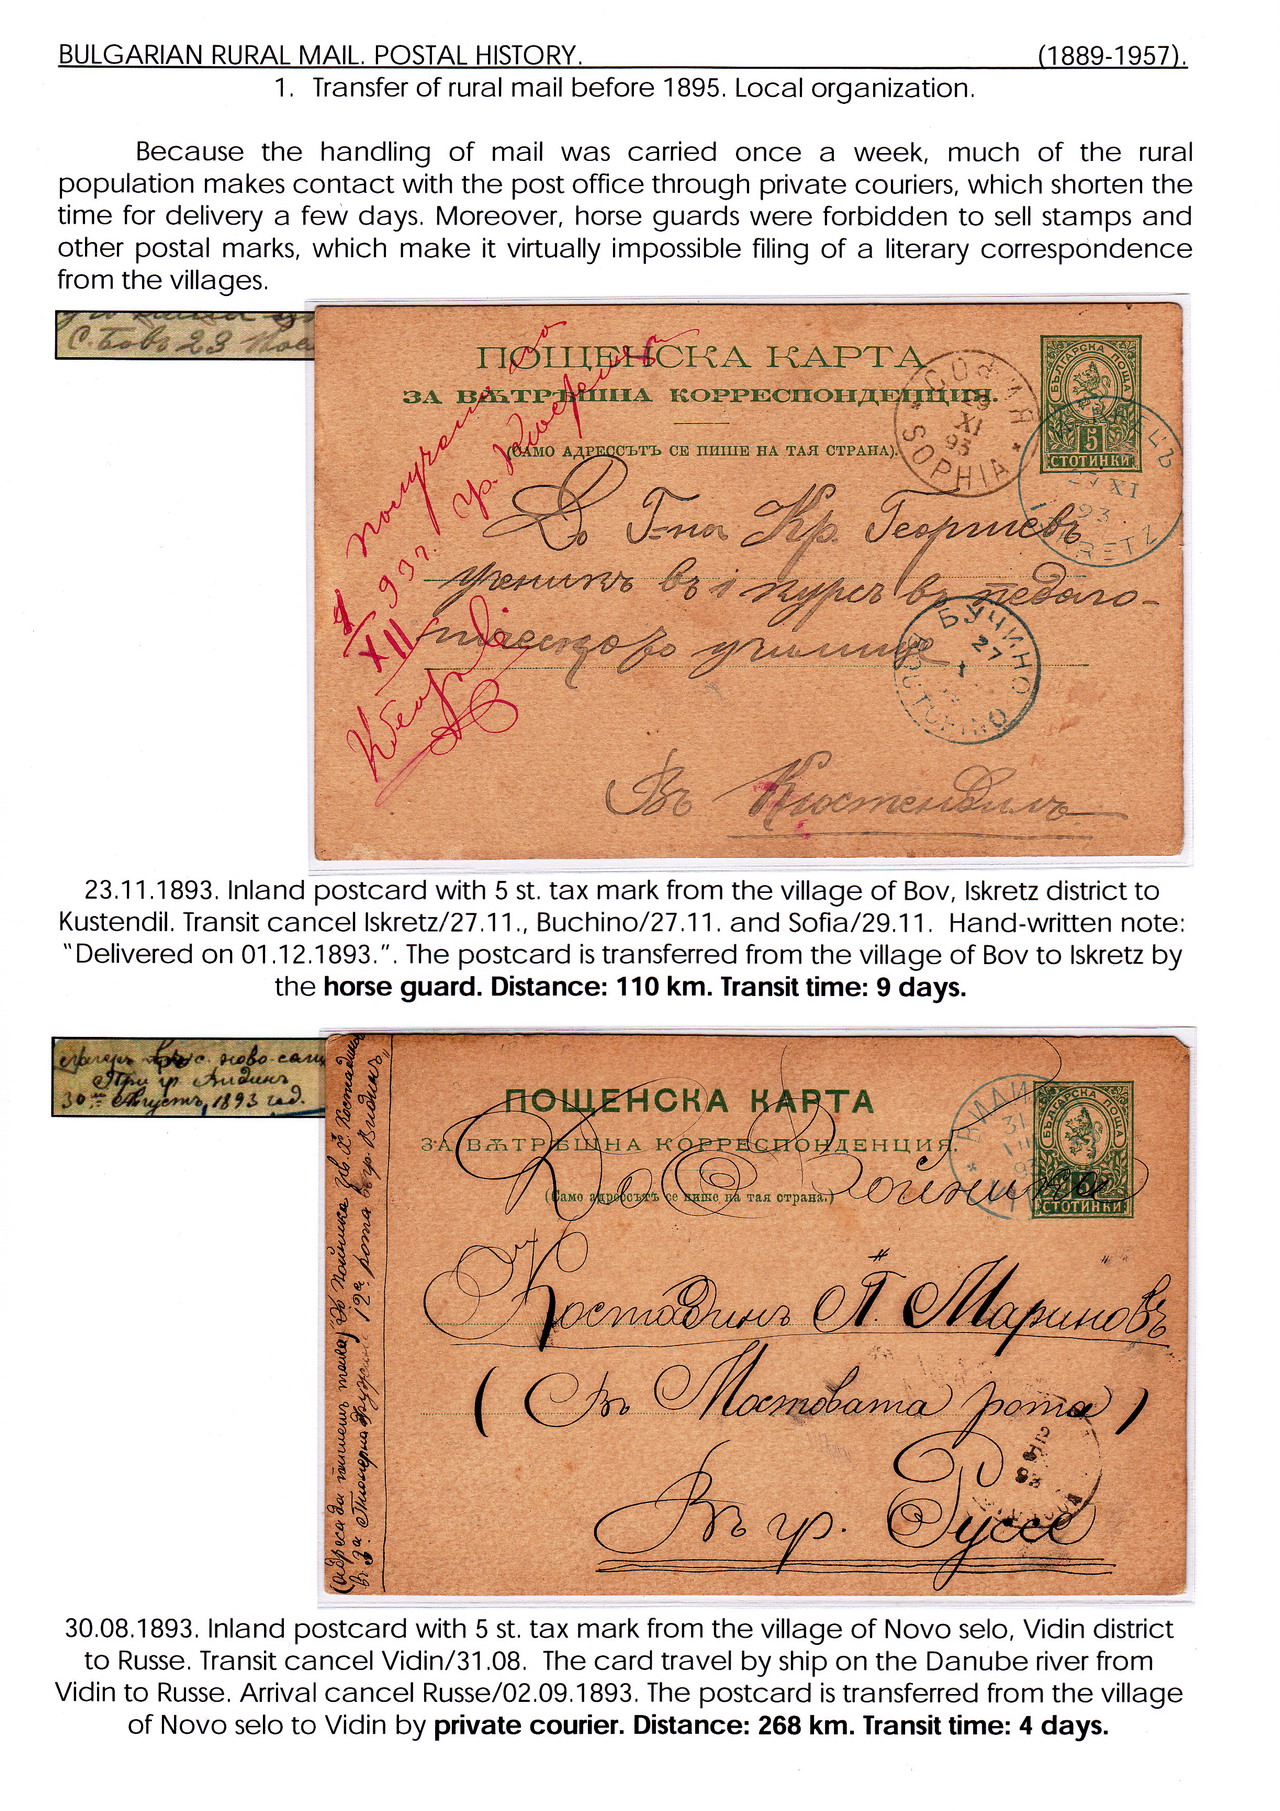 BULGARIAN RURAL MAIL. POSTAL HISTORY. (1889-1957).
1. Transfer of rural mail before 1895. Local organization.
Because the handling of mail was carried once a week, much of the rural
population makes contact with the post office through private couriers, which shorten the
time for delivery a few days. Moreover, horse guards were forbidden to sell stamps and
other postal marks, which make it virtually impossible filing of a literary correspondence
from the villages.
С. Бовъ 23
ПОЩЕНСКА КАРТА
ЗА ВѪТРѢШНА КОРРЕСПОНДЕНЦИЯ.
(САМО АДРЕССЪТЪ СЕ ПИШЕ НА ТАЯ СТРАНА).
БЪЛГАРСКА ПОЩА
5
СТОТИНКИ
СОФИЯ
29
XI
93
SOPHIA
XI
93
ISKRETZ
До Г-на Кр. Георгиевъ
ученикъ въ I курсъ въ педаго-
гическото училище
БУЧИНО
27
Въ Кюстендилъ
XII 93 г.
23.11.1893. Inland postcard with 5 st. tax mark from the village of Bov, Iskretz district to
Kustendil. Transit cancel Iskretz/27.11., Buchino/27.11. and Sofia/29.11. Hand-written note:
“Delivered on 01.12.1893.”. The postcard is transferred from the village of Bov to Iskretz by
the horse guard. Distance: 110 km. Transit time: 9 days.
с. ново-сели
При гр Видинъ
30 Августъ, 1893 год.
ПОЩЕНСКА КАРТА
ЗА ВѪТРѢШНА КОРРЕСПОНДЕНЦИЯ.
(Само адрессътъ се пише на тая страна.)
БЪЛГАРСКА ПОЩА
СТОТИНКИ
ВИДИН
31
До Войника
Костадинъ П. Мариновъ
(Въ Мостовата рота)
Въ гр. Руссе
30.08.1893. Inland postcard with 5 st. tax mark from the village of Novo selo, Vidin district
to Russe. Transit cancel Vidin/31.08. The card travel by ship on the Danube river from
Vidin to Russe. Arrival cancel Russe/02.09.1893. The postcard is transferred from the village
of Novo selo to Vidin by private courier. Distance: 268 km. Transit time: 4 days.